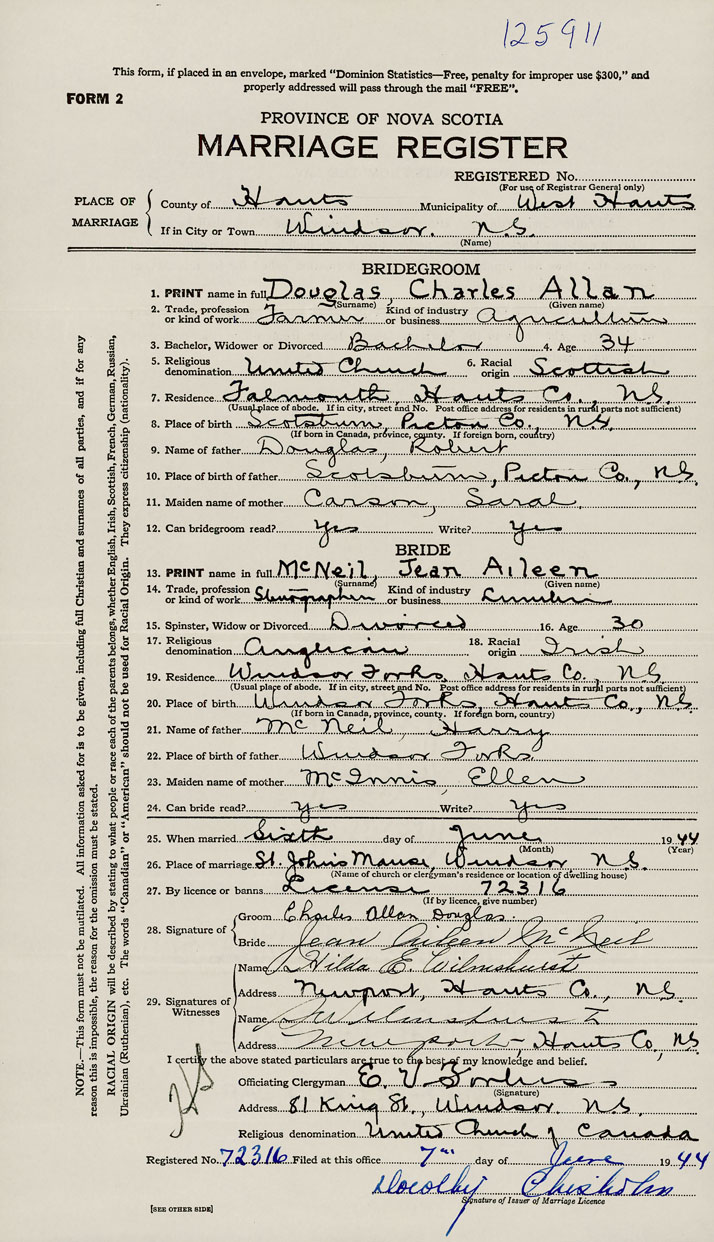 125911
This form, if placed in an envelope, marked "Dominion Statistics—Free, penalty for improper use $300," and
properly addressed will pass through the mail "FREE".
FORM 2
PROVINCE OF NOVA SCOTIA
MARRIAGE REGISTER
REGISTERED No.
(For use of Registrar General only)
PLACE OF MARRIAGE
County of Hants Municipality of West Hants
If in City or Town Windsor. N.S.
(Name)
BRIDEGROOM
1. PRINT name in full Douglas, Charles Allan
(Surname) (Given name)
2. Trade, profession or kind of work Farmer Kind of industry or business Agriculture
3. Bachelor, Widower or Divorced Bachelor 4. Age 34
5. Religious denomination United Church 6. Racial origin Scottish
7. Residence Falmouth, Hants Co., N.S.
(Usual place of abode. If in city, street and No. Post office address for residents in rural parts not sufficient)
8. Place of birth Scotsburn, Picton Co., N.S.
(If born in Canada, province, county. If foreign born, country)
9. Name of father Douglas, Robert
10. Place of birth of father Scotsburn, Picton Co., N.S.
11. Maiden name of mother Carson, Sarah
12. Can bridegroom read? Yes Write? Yes
BRIDE
13. PRINT name in full McNeil, Jean Aileen
(Surname) (Given name)
14. Trade, profession or kind of work Stenographer Kind of industry or business Lumber
15. Spinster, Widow or Divorced Divorced 16. Age 30
17. Religious denomination Anglican 18. Racial origin Irish
19. Residence Windsor Forks, Hants Co., N.S.
(Usual place of abode. If in city, street and No. Post office address for residents in rural parts not sufficient)
20. Place of birth Windsor Forks, Hants Co., N.S.
(If born in Canada, province, county. If foreign born, country)
21. Name of father McNeil, Harry
22. Place of birth of father Windsor Forks
23. Maiden name of mother McInnis, Ellen
24. Can bride read? Yes Write? Yes
25. When married Sixth day of June 1944
(Month) (Year)
26. Place of marriage St. John's Manse, Windsor, N.S.
(Name of church or clergyman's residence or location of dwelling house)
27. By licence or banns License 72316
(If by licence, give number)
28. Signature of
Groom Charles Allan Douglas.
Bride Jean Aileen McNeil
29. Signatures of Witnesses
Name Hilda E. Wilmshurst
Address Newport, Hants Co., N.S.
Name Wilmshurst
Address Newport, Hants Co., N.S.
I certify the above stated particulars are true to the best of my knowledge and belief.
Officiating Clergyman E. V. Forbes
(Signature)
Address 81 King St., Windsor. N.S.
Religious denomination United Church of Canada
Registered No. 72316 Filed at this office 7th day of June 1944
Dorothy Chisholm
Signature of Issuer of Marriage Licence
[SEE OTHER SIDE]
NOTE.—This form must not be mutilated. All information asked for is to be given, including full Christian and surnames of all parties, and if for any
reason this is impossible, the reason for the omission must be stated.
RACIAL ORIGIN will be described by stating to what people or race each of the parents belongs, whether English, Irish, Scottish, French, German, Russian,
Ukrainian (Ruthenian), etc. The words "Canadian" or "American" should not be used for Racial Origin. They express citizenship (nationality).